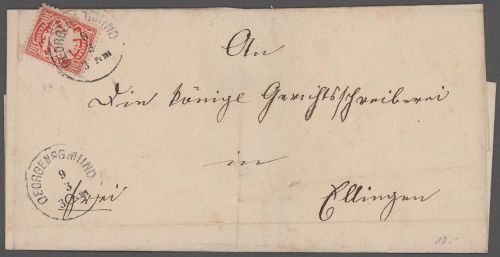 GEORGENSGMÜND
An
Die königl Gerichtsschreiberei
in
GEORGENSGMÜND
9
3
frei
Ellingen
49
10.-